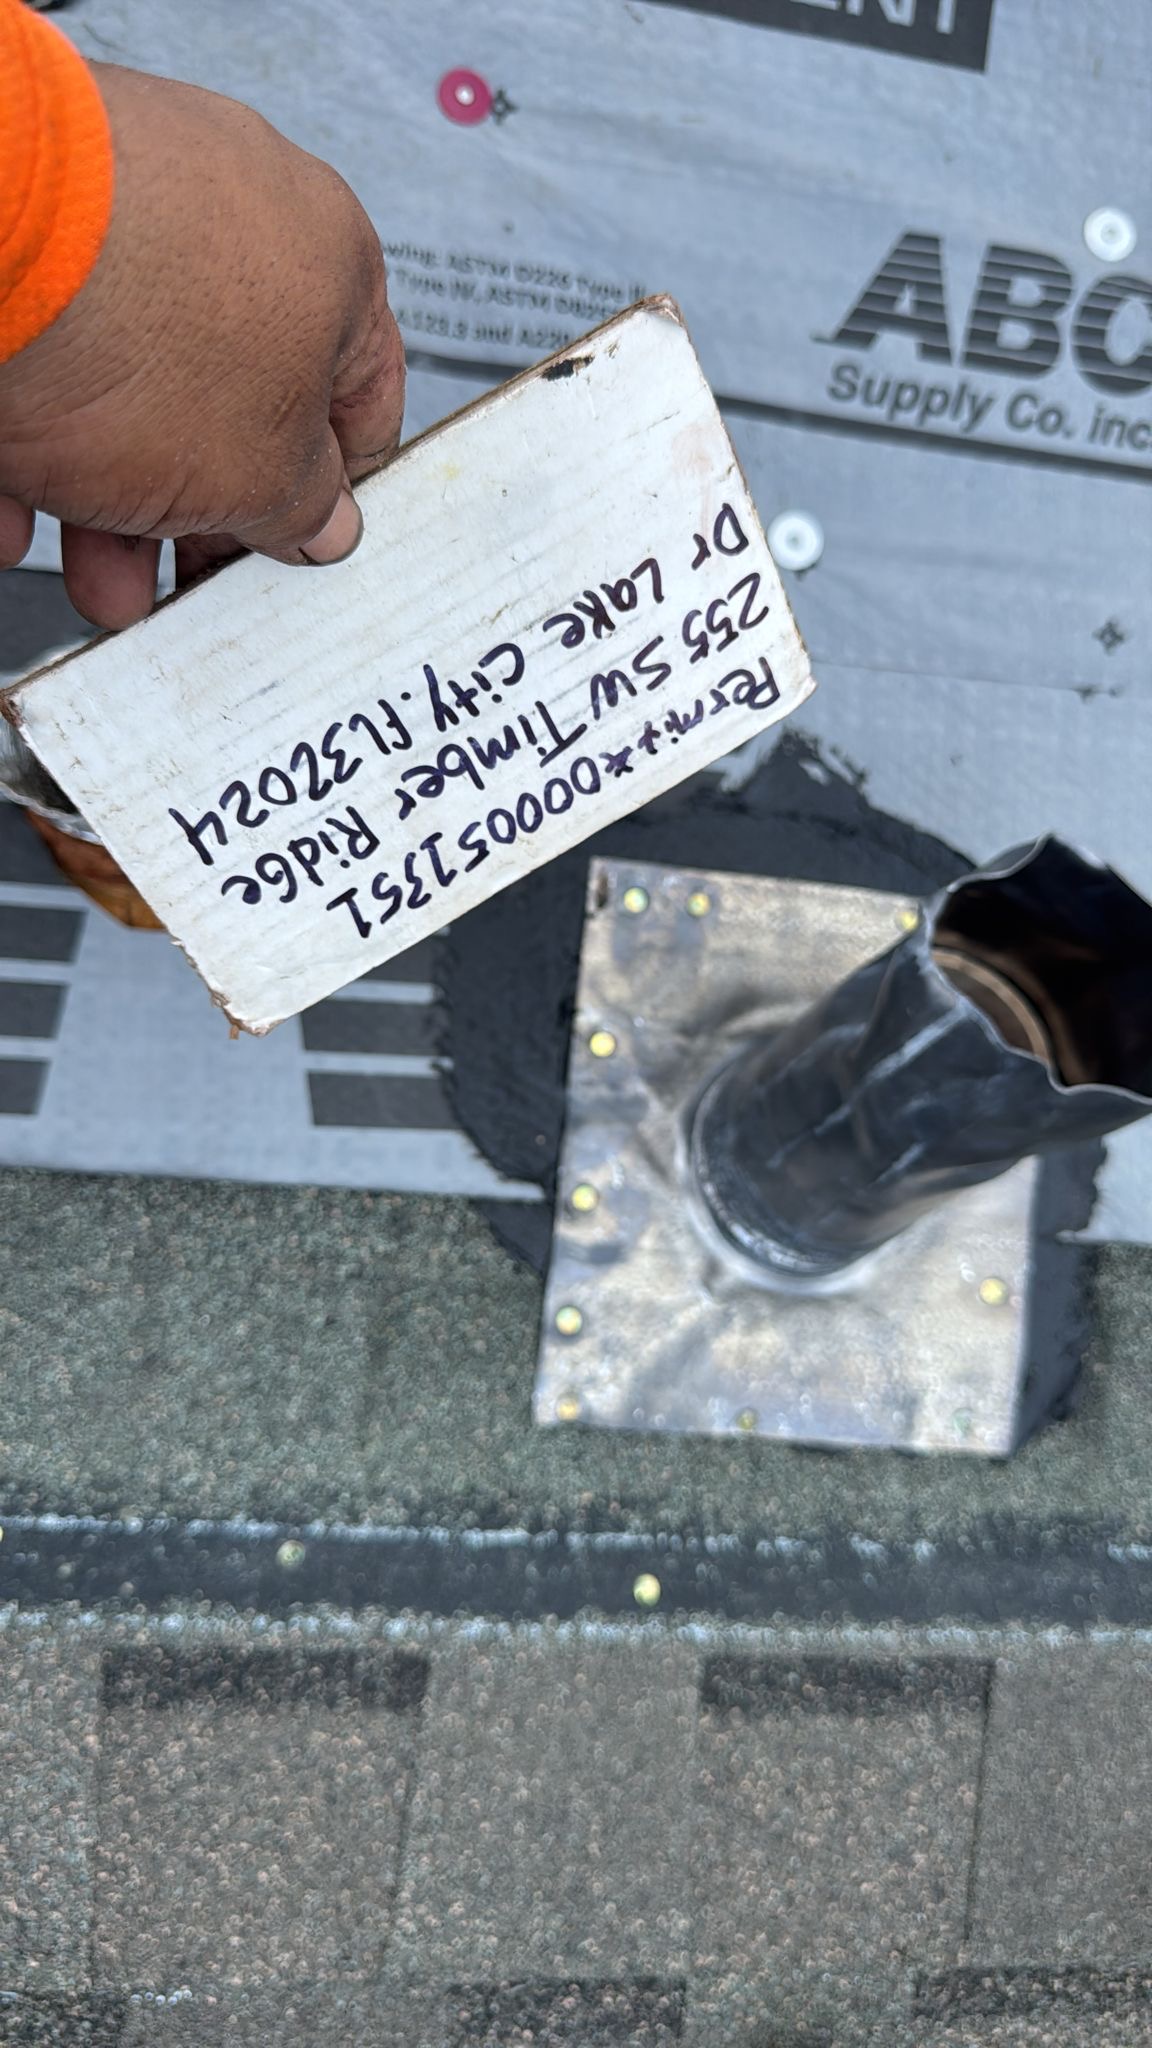 ENT
owing: ASTM D226 Type II
Type IV, ASTM
and
ABC
Supply Co. inc
Permit*000051351
255 SW Timber Ridge
Dr Lake City. FL32024